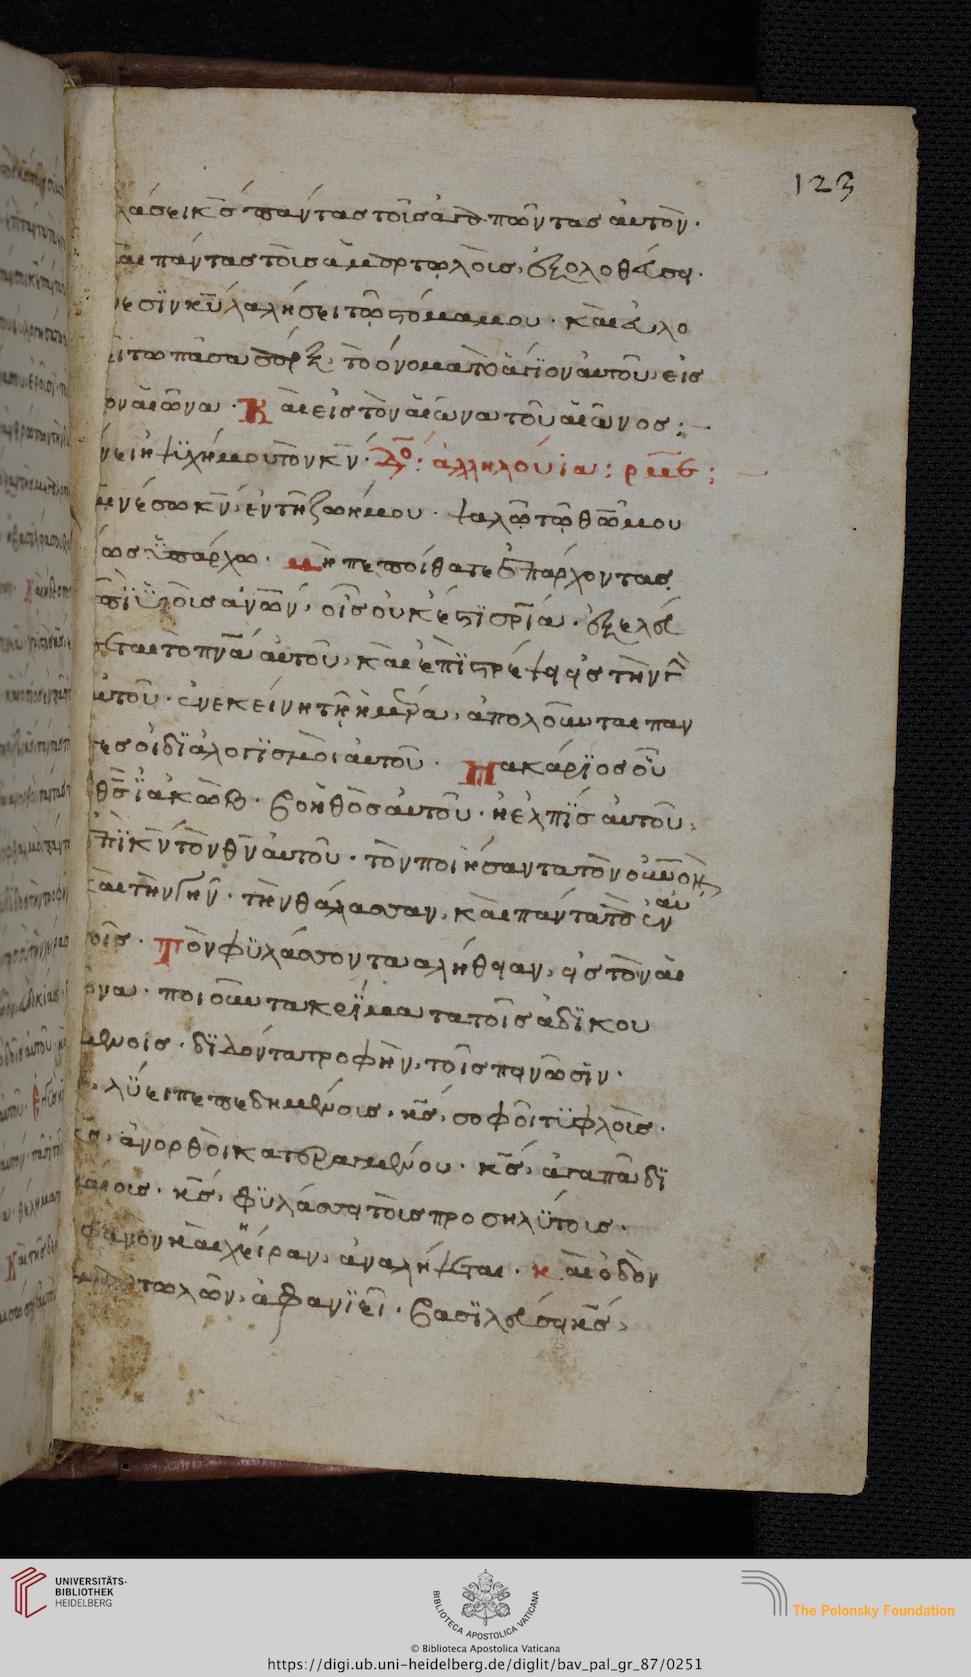 123
λάσει κς πάντας τοὺς ἀγαπῶντας αὐτὸν.
καὶ πάντας τοὺς ἁμαρτωλοὺς, ἐξολοθρεύσει.
αἴνεσιν κυ λαλήσει τὸ στόμα μου. καὶ εὐλο
γείτω πᾶσα σὰρξ, τὸ ὄνομα τὸ ἅγιον αὐτοῦ, εἰς
τὸν αἰῶνα. Καὶ εἰς τὸν αἰῶνα τοῦ αἰῶνος:
αἴνει ἡ ψυχή μου τὸν κν. ἀλληλούια: ρμε:
αἰνέσω κν ἐν τῇ ζωῇ μου. ψαλῶ τῷ θῶ μου
ἕως ὑπάρχω. μὴ πεποίθατε ἐπ' ἄρχοντας
ἐπὶ υἱοὺς ἀνων, οἷς οὐκ ἔστι σρία. ἐξελεύ
σεται τὸ πνα αὐτοῦ, καὶ ἐπιστρέψει εἰς τὴν γῆ
αὐτοῦ. ἐν ἐκείνη τῇ ἡμέρα, ἀπολοῦνται παν
τες οἱ διαλογισμοὶ αὐτοῦ. Μακάριος οὗ
ὁ θς ἰακὼβ. βοηθὸς αὐτοῦ. ἡ ἐλπὶς αὐτοῦ,
ἐπὶ κν τὸν θν αὐτοῦ. τὸν ποιήσαντα τὸν οὐνον κ
καὶ τὴν γῆν. τὴν θάλασσαν, καὶ πάντα τὰ ἐν αὐ
τοῖς. Τὸν φυλάσσοντα ἀλήθειαν, εἰς τὸν αἰ
ῶνα. ποιοῦντα κρίμα τα τοῖς ἀδικου
μένοις. διδόντα τροφὴν, τοῖς πεινῶσιν.
κς, λύει πεπεδημένοις. κς, σοφοῖ τυφλοὺς.
κς, ἀνορθοῖ κατεραγμένου. κς, ἀγαπᾶ δι
καίοις. κς, φυλάσσει τοὺς προσηλύτοις.
ὀρφανὸν καὶ χήραν, ἀναλήψεται. καὶ ὁδὸν
ἁμαρτωλῶν, ἀφανιεῖ. βασιλεύσει κς,
UNIVERSITÄTS-
BIBLIOTHEK
HEIDELBERG
BIBLIOTECA APOSTOLICA VATICANA
The Polonsky Foundation
© Biblioteca Apostolica Vaticana
https://digi.ub.uni-heidelberg.de/diglit/bav_pal_gr_87/0251